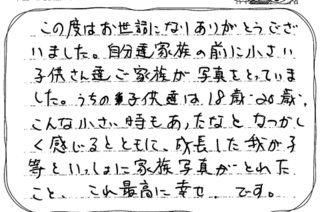 この度はお世話になりありがとうござ
いました。自分達家族の前に小さい
子供さん達ご家族が写真をとっていま
した。うちの子供達は、18歳・20歳・
こんな小さい時もあったなとなつかし
く感じるとともに、成長した我が子
等といっしょに家族写真がとれた
こと、これ最高に幸せ、です。